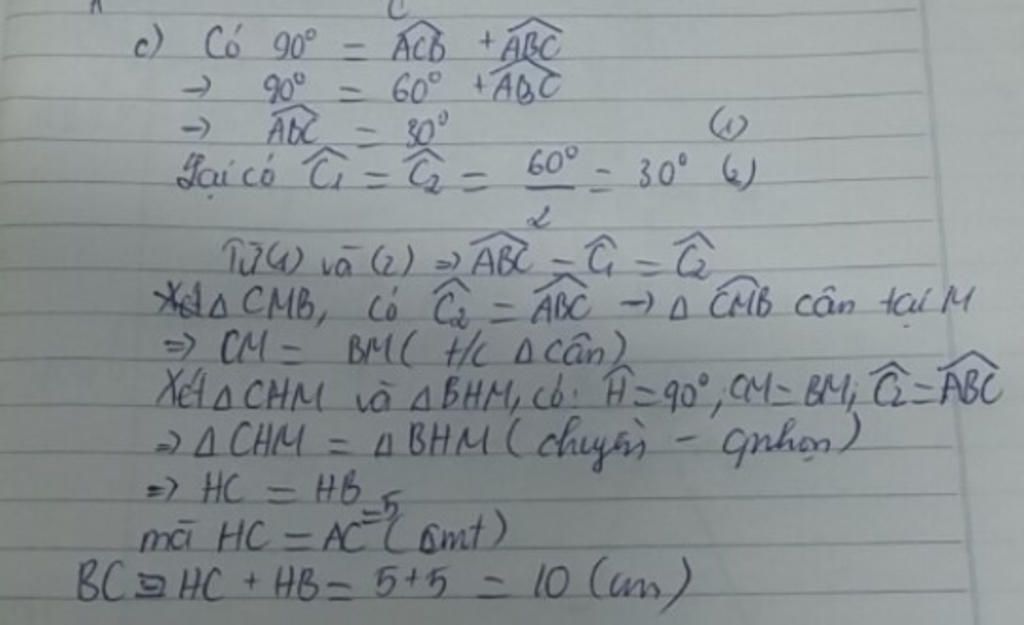 c) Có 90° = ACB + ABC
→ 90° = 60° + ABC
→ ABC = 30° (1)
Lại có C1 = C2 = 60°/2 = 30° (2)
Từ (1) và (2) ⇒ ABC = C1 = C2
Xét Δ CMB, có C2 = ABC → Δ CMB cân tại M
⇒ CM = BM ( t/c Δ cân)
Xét Δ CHM và Δ BHM, có: H = 90°, CM = BM; C2 = ABC
⇒ Δ CHM = Δ BHM ( chuyền - gnhọn )
⇒ HC = HB
mà HC = AC = 5 ( cmt)
BC = HC + HB = 5 + 5 = 10 (cm)